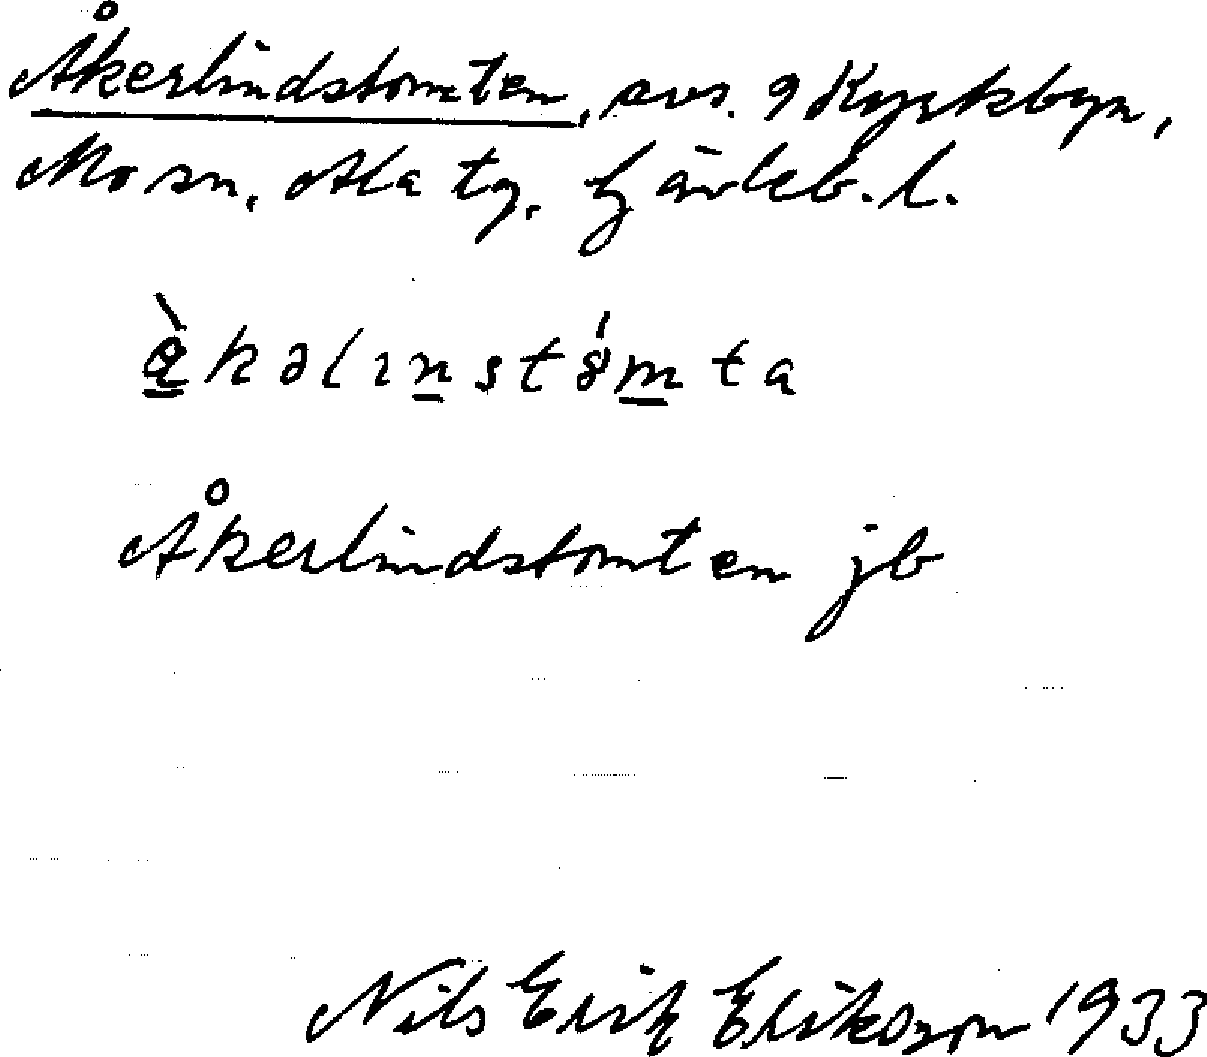 Åkerlindstomten, avs. 9 Kyrkbyn,
Mo sn, Ala tg. Gävleb. l.
Åkerlindstomten jb
Nils Erik Eriksson 1933